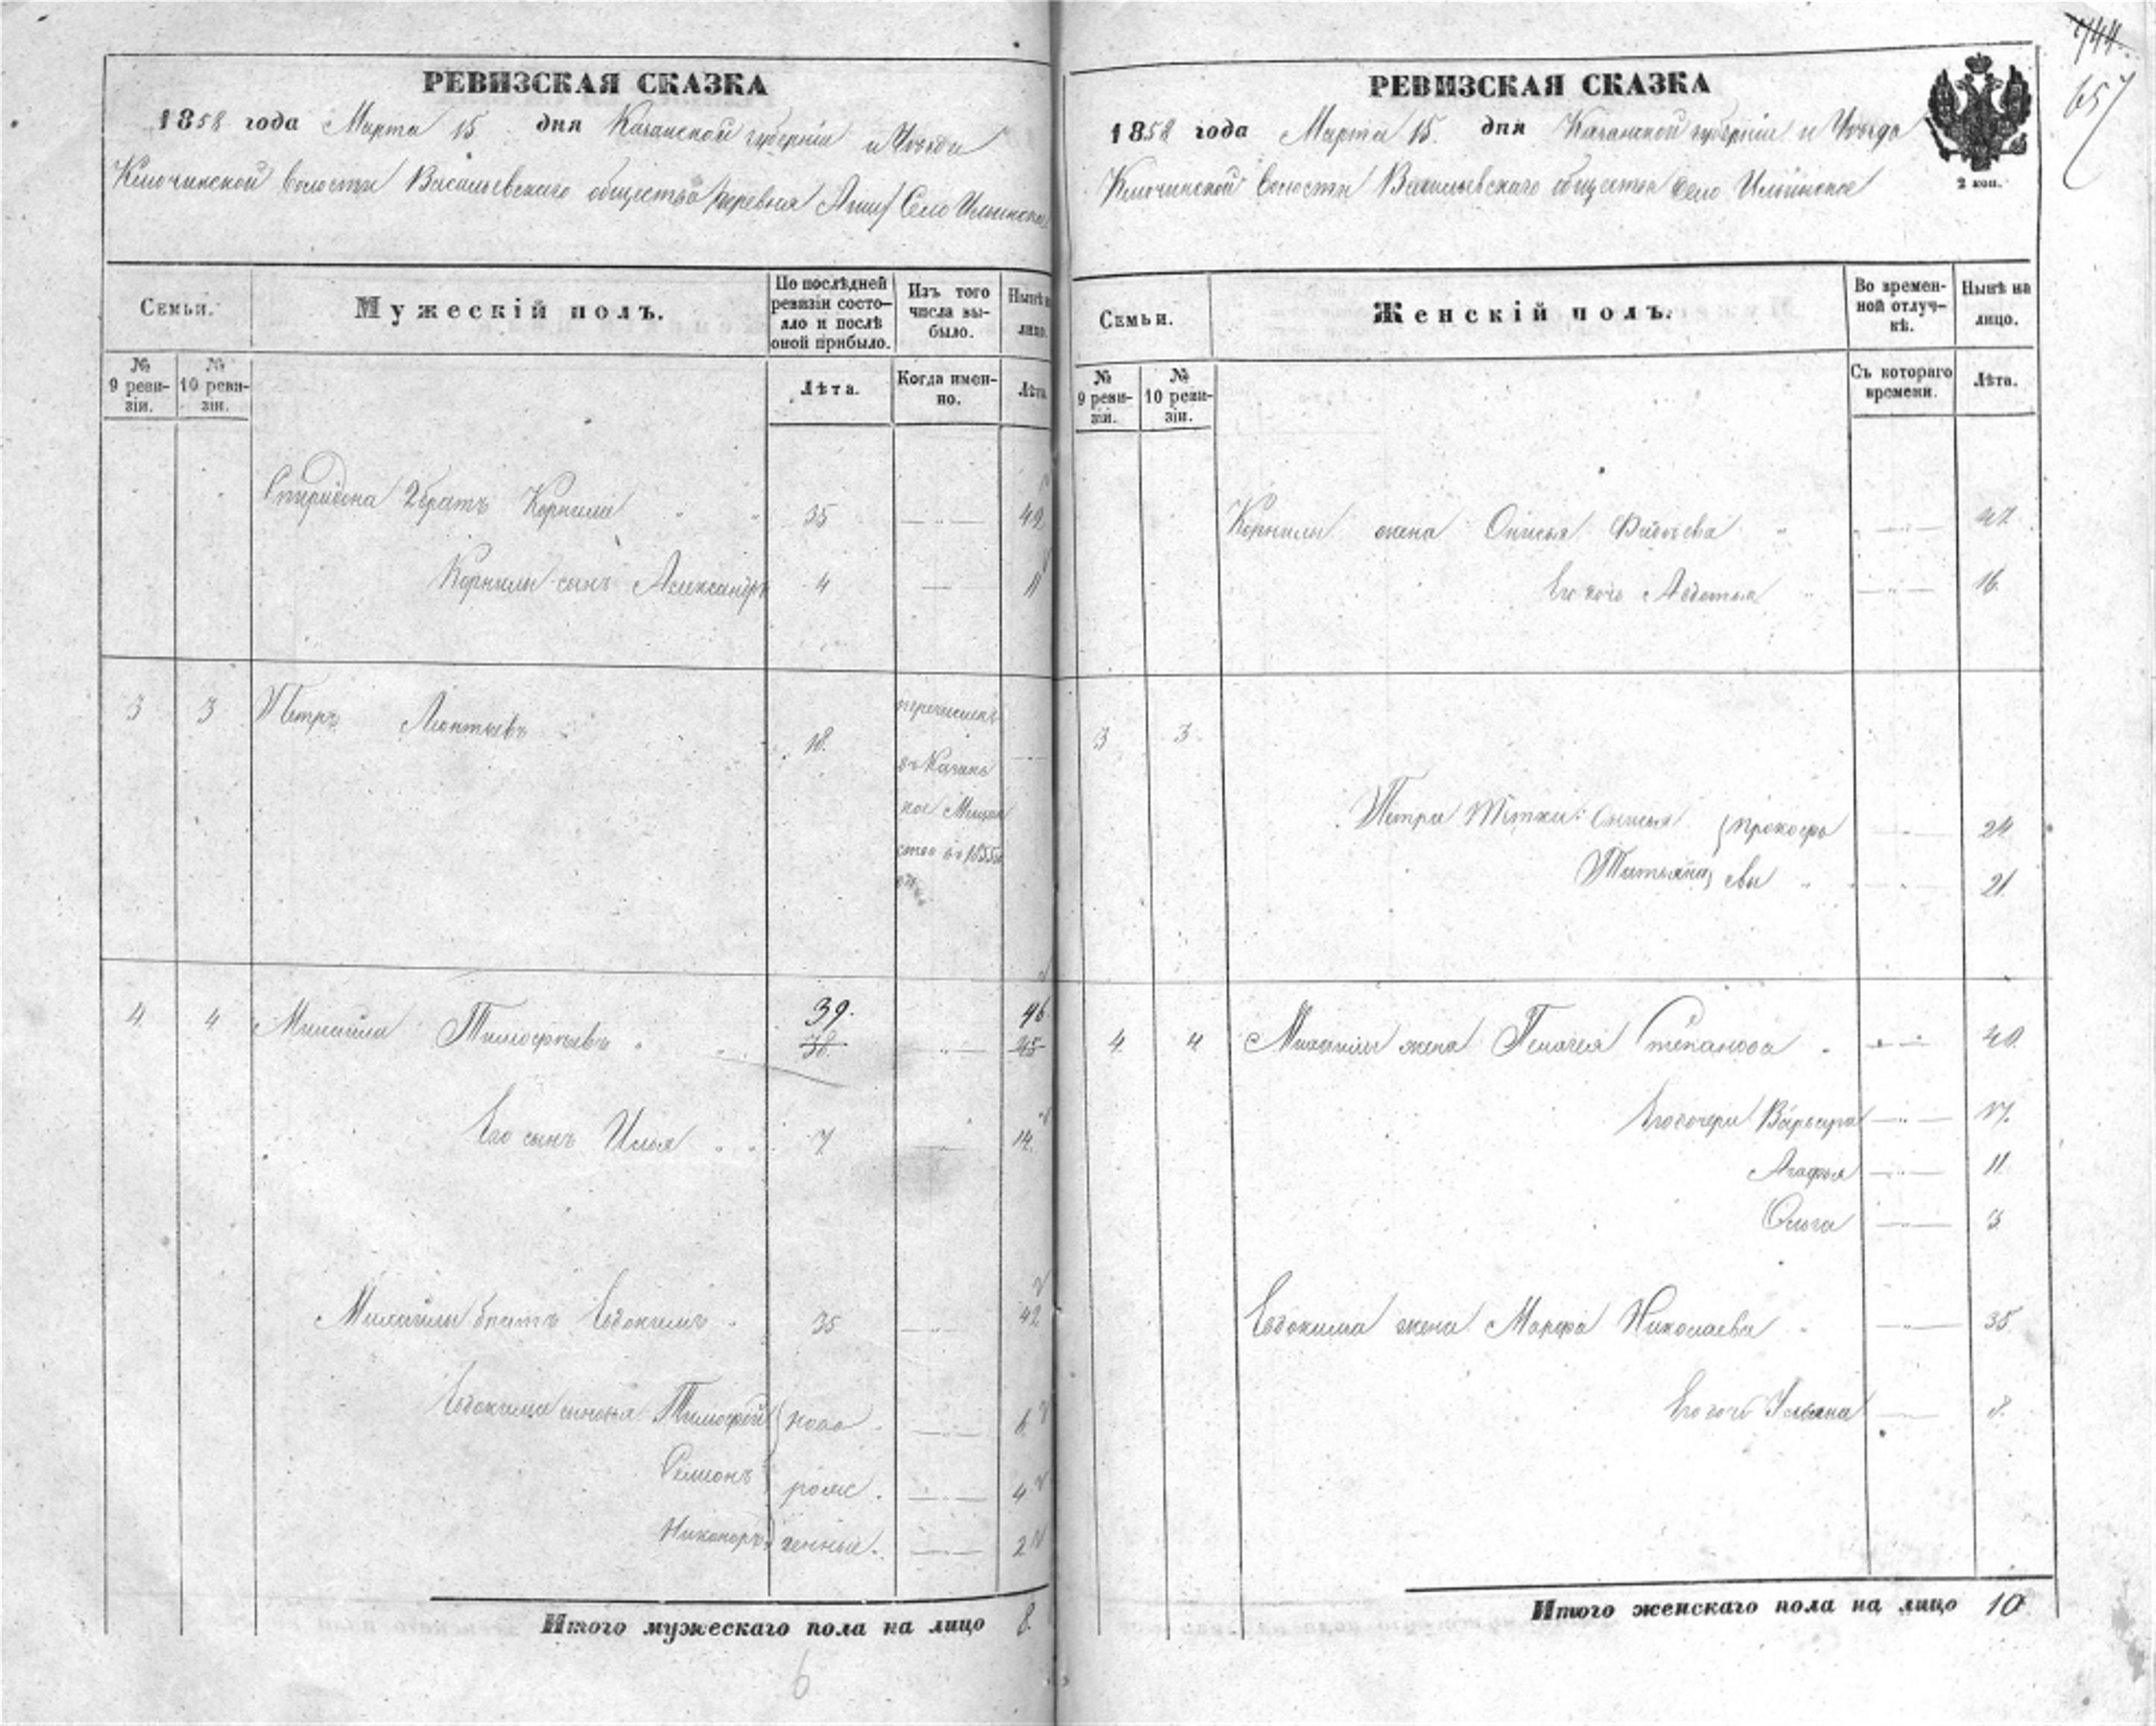 РЕВИЗСКАЯ СКАЗКА
1858 года Марта 15 дня Казанской губернiи и Уѣзда
Ключинской волости Васильевскаго общества деревня Село Ильинское
Семьи. Мужескiй полъ. По послѣдней ревизiи состояло и послѣ оной прибыло. Изъ того числа выбыло. Нынѣ на лицо.
№ 9 ревизiи. № 10 ревизiи. Лѣта. Когда именно. Лѣта
Спиридона 2 братъ Корнилiй 35 49
Корнилы сынъ Александръ 4 11
3 3 Петръ Леонтьевъ 18. перечисленъ
въ Казанс
кое Мещан
ство въ 1855
4 4 Михайла Тимофѣевъ 39. 46
38. 45
Его сынъ Илья 7 14.
Михайлы братъ Евдокимъ 35 42
Евдокима сыновья Тимофей ново 6
Семионъ рож 4
Никаноръ денные. 2
Итого мужескаго пола на лицо 8.
6
744
657
РЕВИЗСКАЯ СКАЗКА
1858 года Марта 15. дня Казанской губернiи и Уѣзда
Ключинской волости Васильевскаго общества село Ильинское
2 коп.
Семьи. Женскiй полъ. Во временной отлучкѣ. Нынѣ на лицо.
№ 9 ревизiи. № 10 ревизiи. Съ котораго времени. Лѣта.
Корнилы жена Онисья 47.
Его дочь Авдотья 16.
3 3
Петра тетки: Онисья Прокофь 24
Татьяна евы 21
4. 4. Михайлы жена Степанова 40.
Его дочери Варвара 17.
Агафья 11.
Ольга 3.
Евдокима жена Марфа Николаева 35.
Его дочь Ульяна 8.
Итого женскаго пола на лицо 10